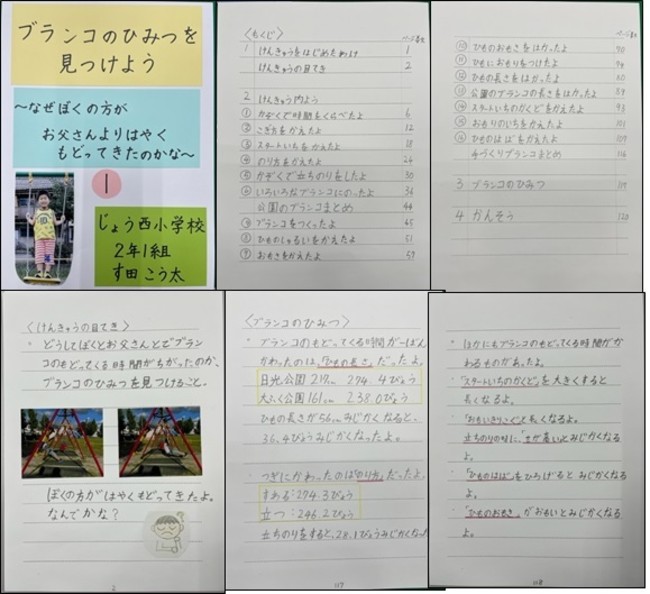 ブランコのひみつを
見つけよう
〜なぜぼくの方が
お父さんよりはやく
もどってきたのかな〜
1
じょう西小学校
2年1組
す田こう太
〈もくじ〉
ページ番号
1 けんきゅうをはじめたわけ 1
けんきゅうの目てき 2
2 けんきゅう内よう
① かぞくで時間をくらべたよ 6
② こぎ方をかえたよ 12
③ スタートいちをかえたよ 18
④ のり方をかえたよ 24
⑤ かぞくで立ちのりをしたよ 30
⑥ いろいろなブランコにのったよ 36
公園のブランコまとめ 44
⑦ ブランコをつくったよ 45
⑧ ひものしゅるいをかえたよ 51
⑨ おもさをかえたよ 57
ページ番号
⑩ ひものおもさをはかったよ
⑪ ひもにおもりをつけたよ 74
⑫ ひもの長さをはかったよ 80
⑬ 公園のブランコの長さをはかったよ 89
⑭ スタートいちのかくどをかえたよ 93
⑮ おもりのいちをかえたよ 101
⑯ ひものはばをかえたよ 109
手づくりブランコまとめ 116
3 ブランコのひみつ 117
4 かんそう 120
〈けんきゅうの目てき〉
・どうしてぼくとお父さんとでブラン
コのもどってくる時間がちがったのか、
ブランコのひみつを見つけること。
ぼくの方がはやくもどってきたよ。
なんでかな?
2
〈ブランコのひみつ〉
・ブランコのもどってくる時間が一ばん
かわったのは、「ひもの長さ」だったよ。
日光公園 217cm 274.4びょう
大ふく公園 161cm 238.0びょう
ひもの長さが56cmみじかくなると、
36.4びょうみじかくなったよ。
・つぎにかわったのは「のり方」だったよ。
すわる:274.3びょう
立つ:246.2びょう
立ちのりをすると、28.1びょうみじかくなったよ
117
・ほかにもブランコのもどってくる時間がか
わるものがあったよ。
・「スタートいちのかくど」を大きくすると
長くなるよ。
・「おもいきりこぐ」と長くなるよ。
・立ちのりの時に、「せが高い」とみじかくなる
よ。
・「ひものはば」をひろげるとみじかくなる
よ。
・「ひものおもさ」がおもいとみじかくなる
よ。
118